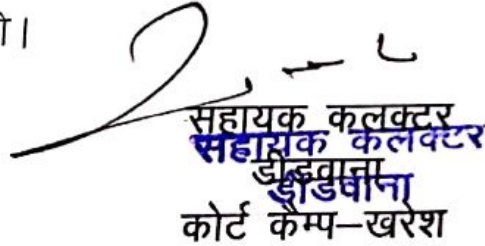 ी।
सहायक कलक्टर
सहायक कलक्टर
डीडवाना
डीडवाना
कोर्ट कैम्प–खरेश